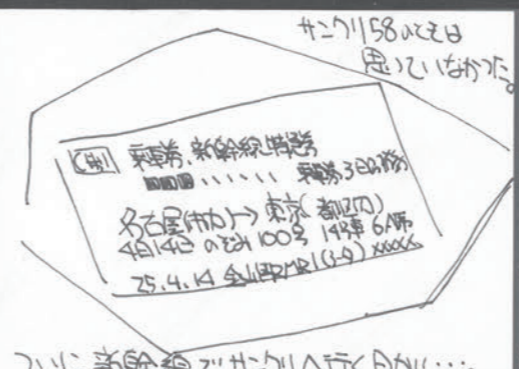 サンクリ58のときは
思っていなかった。
C制 乗車券・新幹線特急券
乗車券3日間有効
名古屋(市内)→東京(都区内)
4月14日 のぞみ100号 14号車 6A席
25.4.14 金山駅MR1(3-9) XXXXX
ついに新幹線でサンクリへ行く日が…